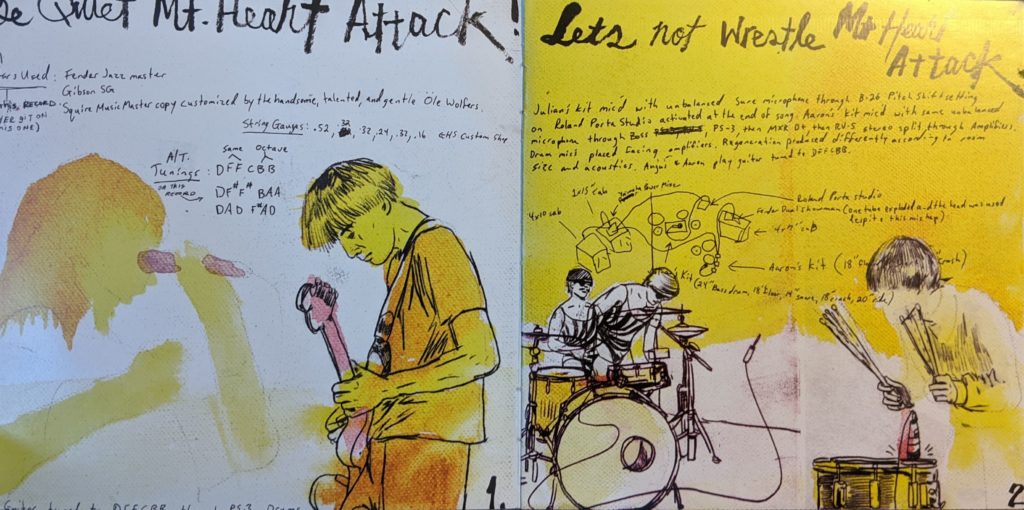 Quiet Mt. Heart Attack!
Used: Fender Jazzmaster
Gibson SG
Squire MusicMaster copy customized by the handsome, talented, and gentle Ole Wolfers.
RECORD
String Gauges: .52, .32, .24, .16
Custom Shop
same Octave
Alt. Tunings: DFFCBB
on this record
DF#F#BAA
DAD F#AD
tuned to DFFCBB
PS-3
Drums
1.
Lets not Wrestle Mt. Heart Attack
Julian's kit mic'd with unbalanced Sure microphone through B:26 Pitch Shift setting
on Roland Porta Studio activated at the end of song. Aaron's kit mic'd with same unbalanced
microphone through Boss PS-3, then MXR D+, then RV-5 stereo split through Amplifiers.
Drum mics placed facing amplifiers. Regeneration produced differently according to room
size and acoustics. Angus & Aaron play guitar tuned to DFFCBB.
1x15" cab
4x10 cab
Roland Porta studio
Fender Dual showman (one tube exploded and the head was used despite this mishap)
cab
Aaron's kit (18"
crash)
Kit (24" Bass drum, 18" floor, 14" snare, 18" crash, 20" ride)
2